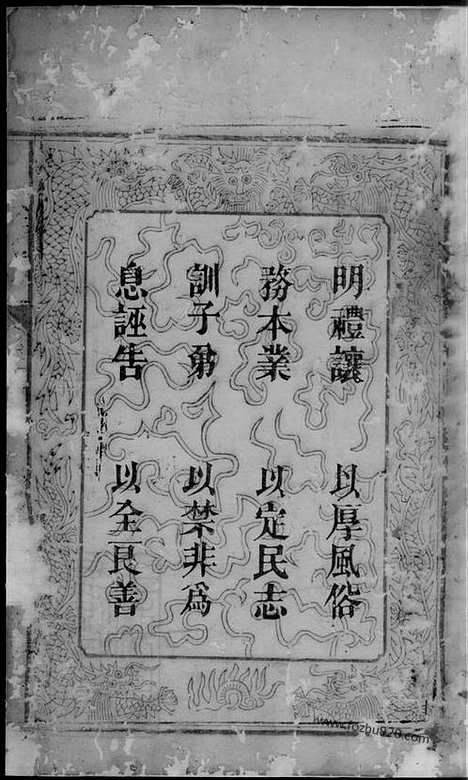 明禮讓 以厚風俗
務本業 以定民志
訓子弟 以禁非爲
息誣告 以全良善
www.fozhu920.com